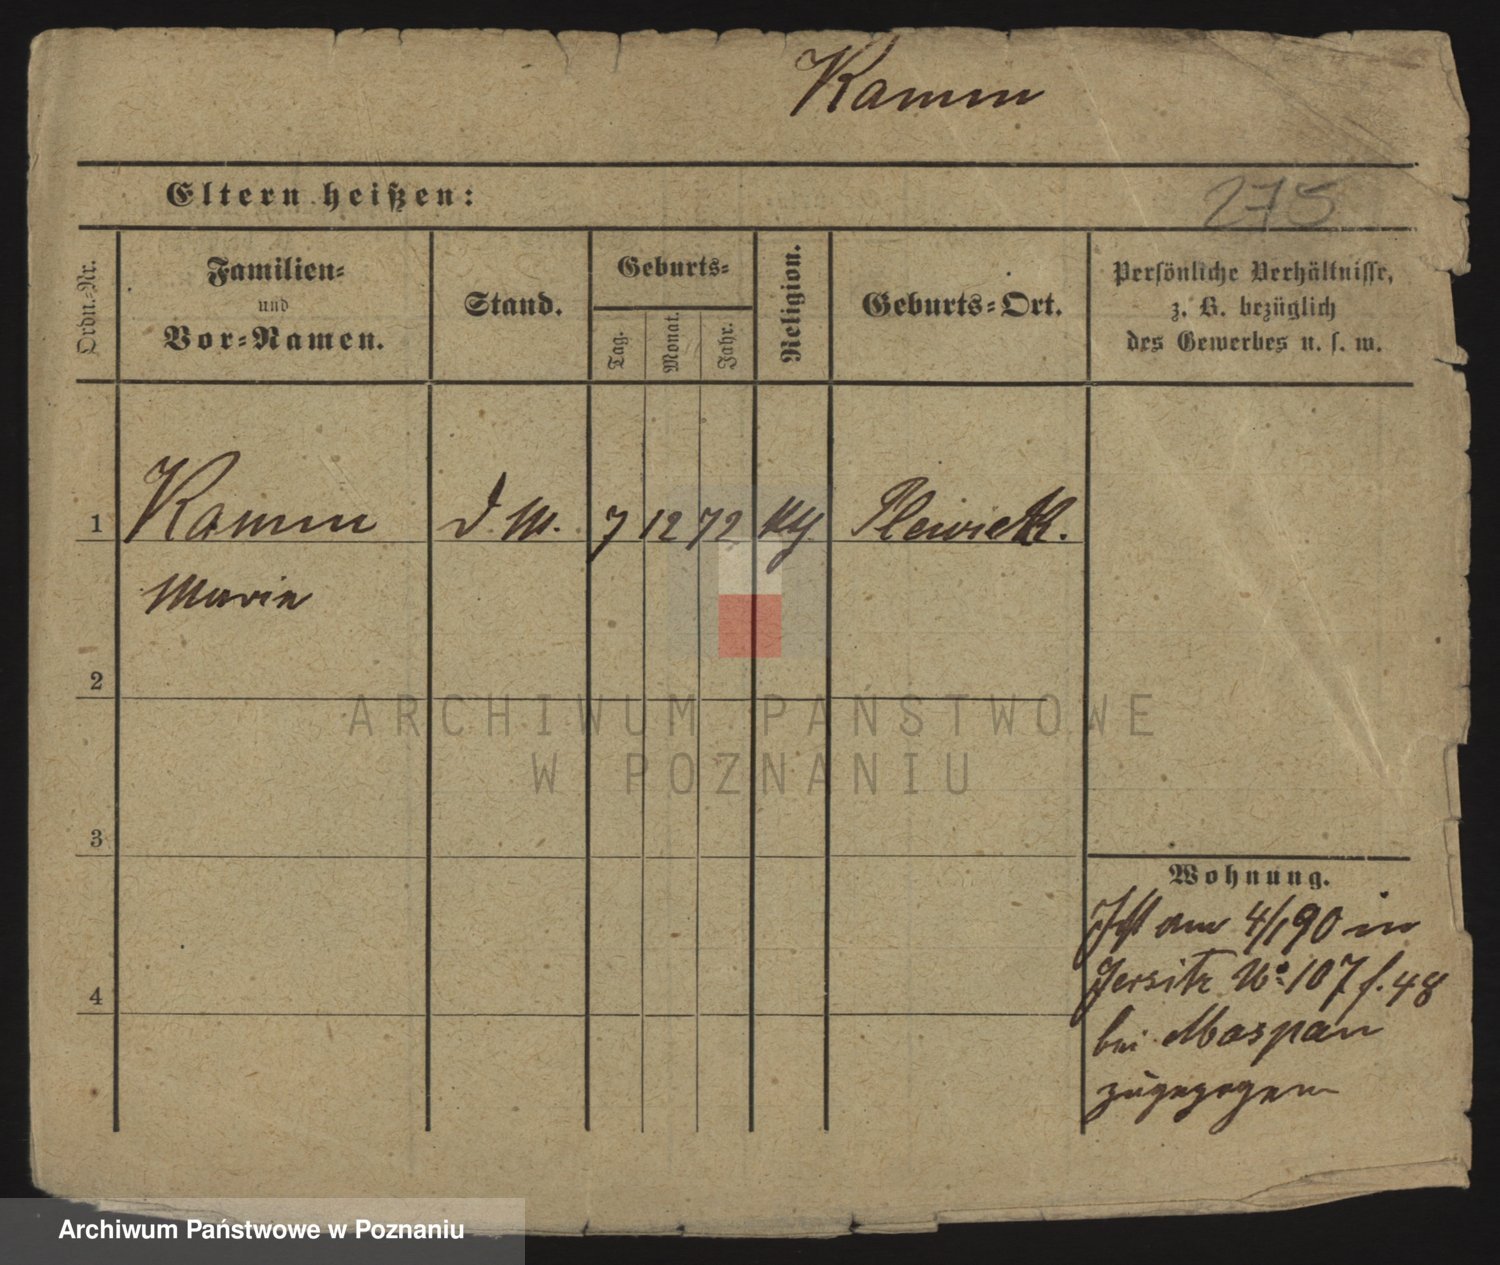 Kamm
Eltern heißen:
275
Ordn.-Nr.
Familien-
und
Vor-Namen.
Stand.
Geburts-
Tag.
Monat.
Jahr.
Religion.
Geburts-Ort.
Persönliche Verhältnisse,
z. B. bezüglich
des Gewerbes u. s. w.
1 Kamm d. M. 7 12 72 Plewisk.
Marie
2
3
4
Wohnung.
Ist am 4/1 90 in
Jersitz No. 107 f. 48
bei Maspan
zugezogen
ARCHIWUM PAŃSTWOWE
W POZNANIU
Archiwum Państwowe w Poznaniu